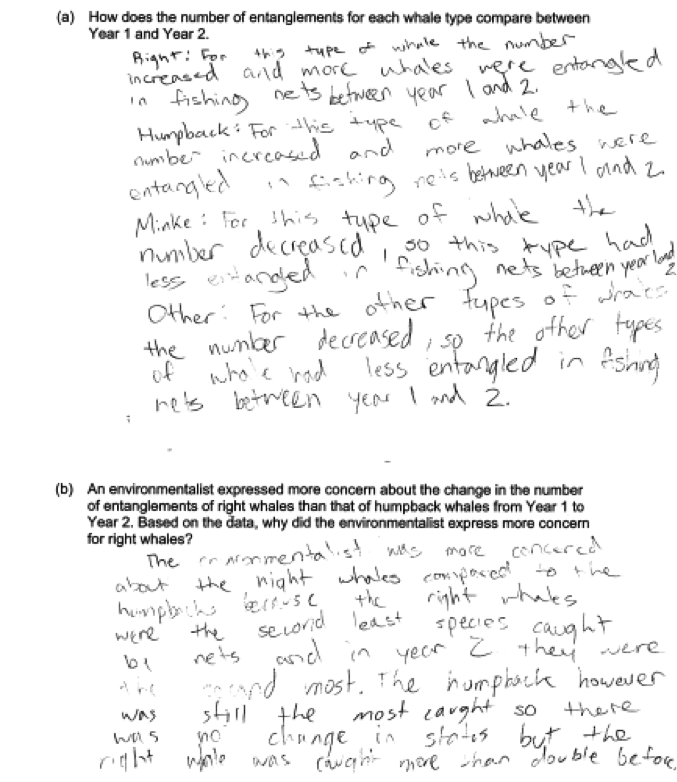 (a) How does the number of entanglements for each whale type compare between
Year 1 and Year 2.
Right: For this type of whale the number
increased and more whales were entangled
in fishing nets between year 1 and 2.
Humpback: For this type of whale the
number increased and more whales were
entangled in fishing nets between year 1 and 2
Minke: For this type of whale the
number decreased, so this type had
less entangled in fishing nets between year 1 and
2
Other: For the other types of whales
the number decreased, so the other types
of whale had less entangled in fishing
nets between year 1 and 2.
(b) An environmentalist expressed more concern about the change in the number
of entanglements of right whales than that of humpback whales from Year 1 to
Year 2. Based on the data, why did the environmentalist express more concern
for right whales?
The environmentalist was more concered
about the right whales compared to the
humpbacks because the right whales
were the second least species caught
by nets and in year 2 they were
the second most. The humpback however
was still the most caught so there
was no change in status but the
right whale was caught more than double before.